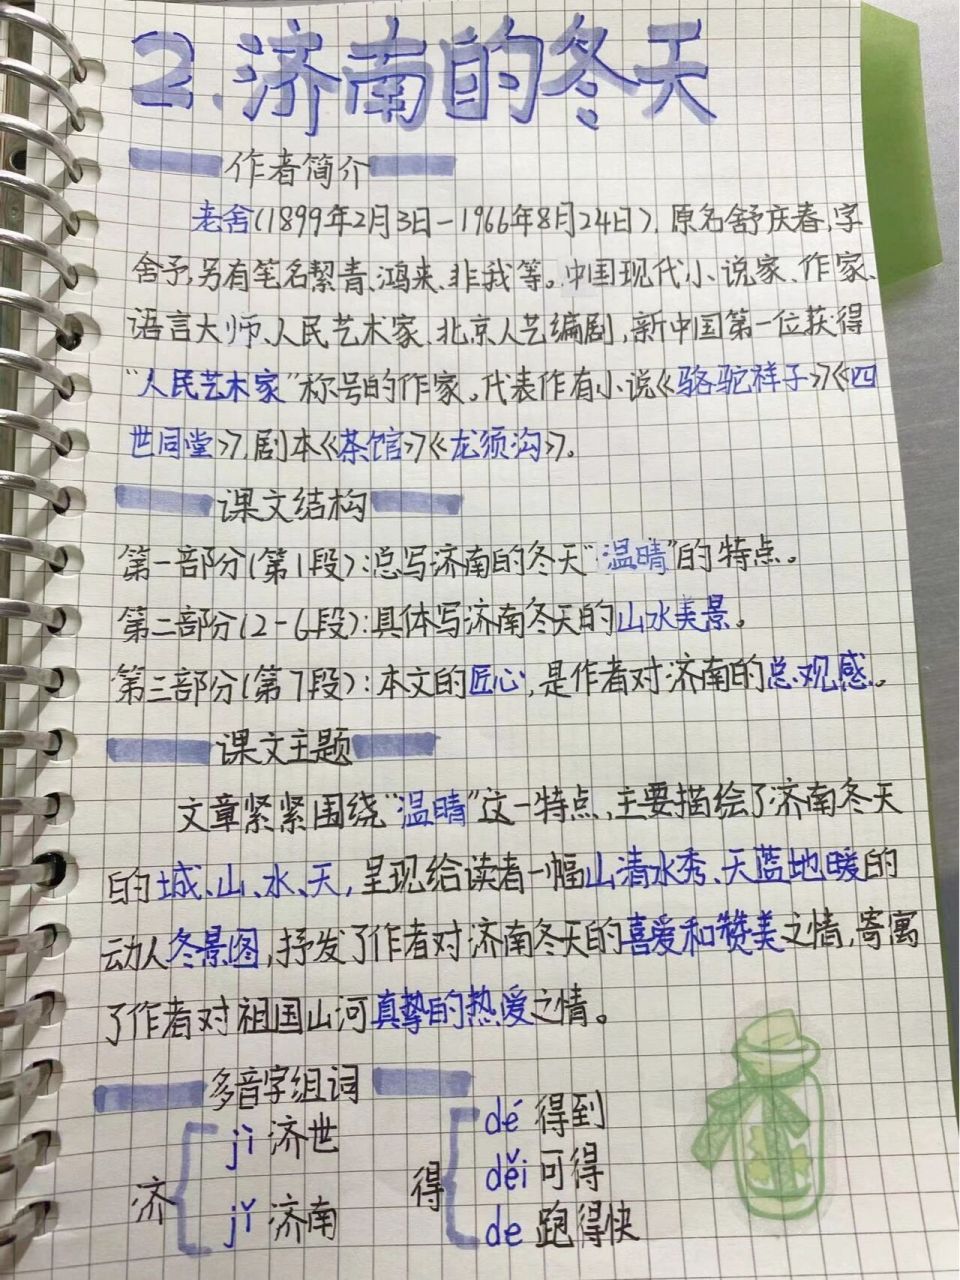 2.济南的冬天
作者简介
老舍(1899年2月3日-1966年8月24日),原名舒庆春,字
舍予,另有笔名絜青、鸿来、非我等。中国现代小说家、作家、
语言大师、人民艺术家、北京人艺编剧,新中国第一位获得
“人民艺术家”称号的作家。代表作有小说《骆驼祥子》《四
世同堂》,剧本《茶馆》《龙须沟》。
课文结构
第一部分(第1段):总写济南的冬天“温晴”的特点。
第二部分(2-6段):具体写济南冬天的山水美景。
第三部分(第7段):本文的匠心,是作者对济南的总观感。
课文主题
文章紧紧围绕“温晴”这一特点,主要描绘了济南冬天
的城、山、水、天,呈现给读者一幅山清水秀、天蓝地暖的
动人冬景图,抒发了作者对济南冬天的喜爱和赞美之情,寄寓
了作者对祖国山河真挚的热爱之情。
多音字组词
济
jì 济世
jǐ 济南
得
dé 得到
děi 可得
de 跑得快